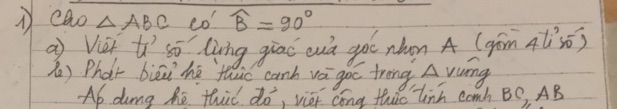 1) Cho △ ABC có B̂ = 90°
a) Viết tỉ số lượng giác của góc nhọn A (gồm 4 tỉ số)
b) Phát biểu hệ thức cạnh và góc trong △ vuông
Áp dụng hệ thức đó, viết công thức tính cạnh BC, AB